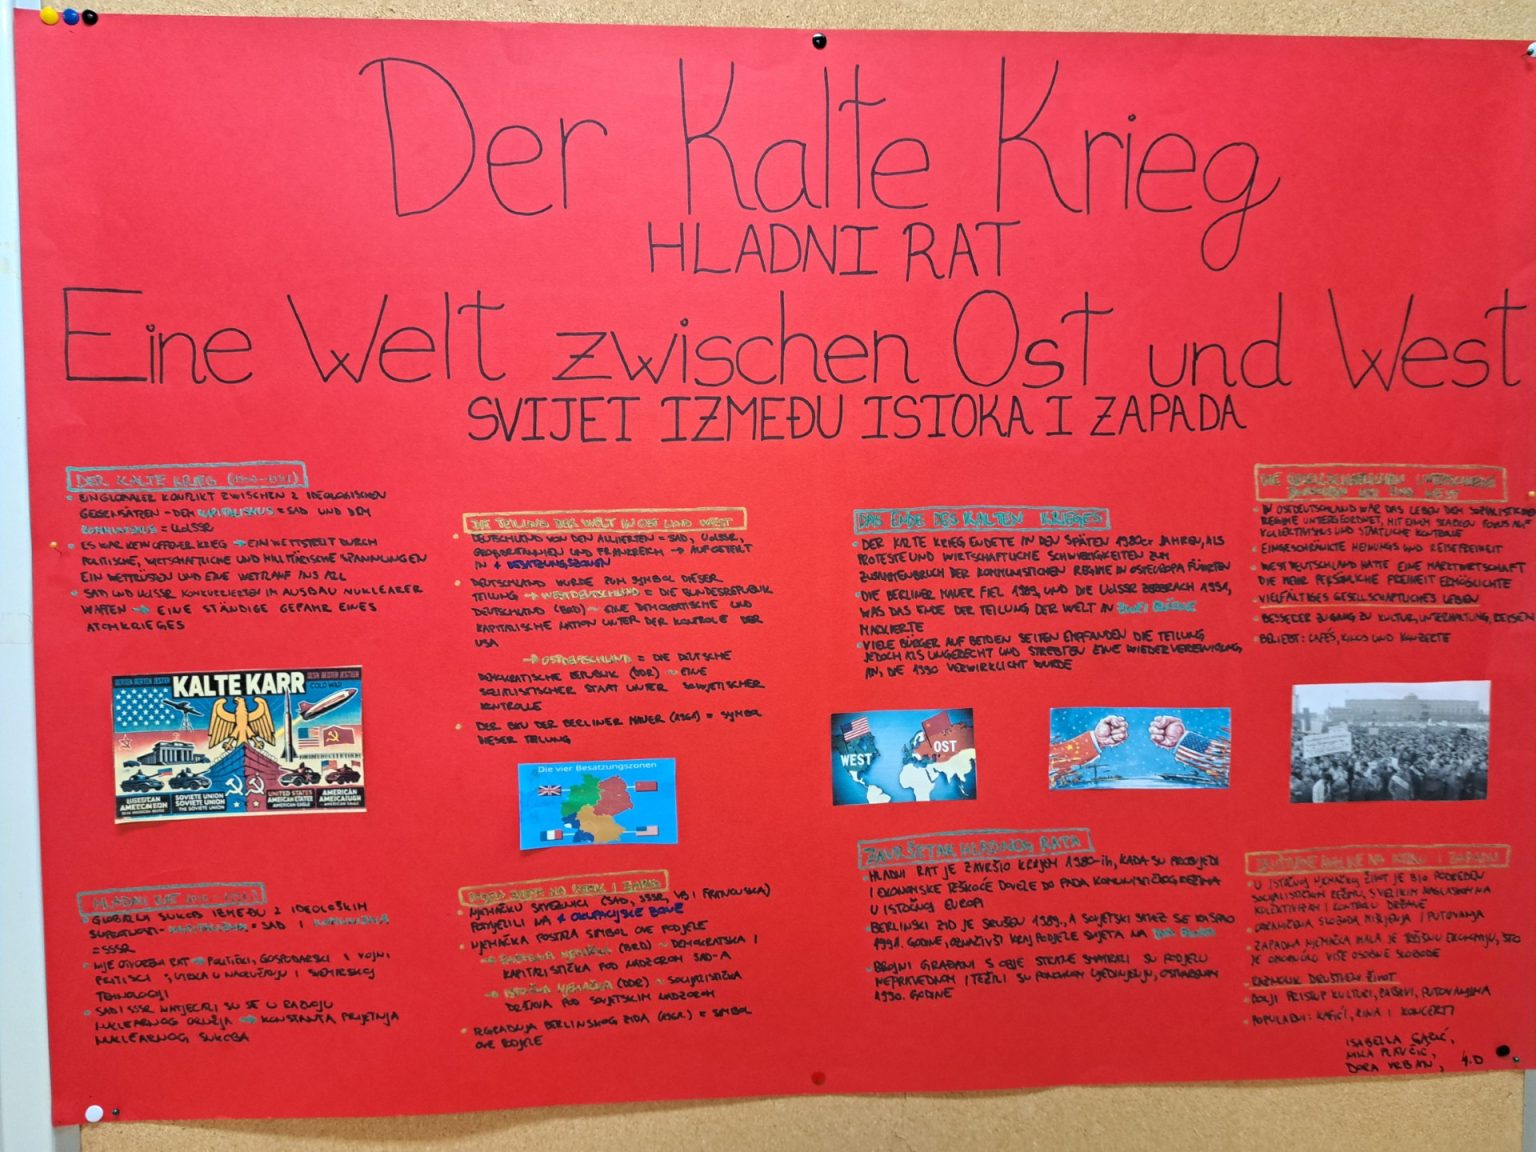 Der Kalte Krieg
HLADNI RAT
Eine Welt zwischen Ost und West
SVIJET IZMEĐU ISTOKA I ZAPADA
DER KALTE KRIEG
EIN GLOBALER KONFLIKT ZWISCHEN 2 IDEOLOGISCHEN
GEGENSÄTZEN - DEM KAPITALISMUS = SAD UND DEM
KOMMUNISMUS = UdSSR
ES WAR KEIN OFFENER KRIEG → EIN WETTSTREIT DURCH
POLITISCHE, WIRTSCHAFTLICHE UND MILITÄRISCHE SPANNUNGEN
EIN WETTRÜSTEN UND EINE WETTLAUF INS ALL
SAD UND UdSSR KONKURRIERTEN IM AUSBAU NUKLEARER
WAFFEN → EINE STÄNDIGE GEFAHR EINES
ATOMKRIEGES
KALTE KARR
COLD WAR
SOVIETE UNION
SOVIETE UNION
THE SOVIETE UNION
UNITED STATES
AMERICAN
HLADNI RAT
GLOBALNI SUKOB IZMEĐU 2 IDEOLOŠKIH
SUPROTNOSTI - KAPITALIZMA = SAD I KOMUNIZMA
= SSSR
NIJE OTVOREN RAT → POLITIČKI, GOSPODARSKI I VOJNI
PRITISCI, UTRKA U NAORUŽANJU I SVEMIRSKOJ
TEHNOLOGIJI
SAD I SSSR NATJECALI SU SE U RAZVOJU
NUKLEARNOG ORUŽJA → KONSTANTA PRIJETNJA
NUKLEARNOG SUKOBA
DIE TEILUNG DER WELT IN OST UND WEST
DEUTSCHLAND VON DEN ALLIIERTEN = SAD, UdSSR,
GROßBRITANNIEN UND FRANKREICH → AUFGETEILT
IN 4 BESATZUNGSZONEN
DEUTSCHLAND WURDE ZUM SYMBOL DIESER
TEILUNG → WESTDEUTSCHLAND = DIE BUNDESREPUBLIK
DEUTSCHLAND (BRD) ~ EINE DEMOKRATISCHE UND
KAPITALISCHE NATION UNTER DER KONTROLLE DER
USA
→ OSTDEUTSCHLAND = DIE DEUTSCHE
DEMOKRATISCHE REPUBLIK (DDR) ~ EINE
SOZIALISTISCHER STAAT UNTER SOWJETISCHER
KONTROLLE
DER BAU DER BERLINER MAUER (1961) = SYMBOL
DIESER TEILUNG
Die vier Besatzungszonen
NJEMAČKU SAVEZNICI (SAD, SSSR, VB I FRANCUSKA)
PODIJELILI NA 4 OKUPACIJSKE ZONE
NJEMAČKA POSTALA SIMBOL OVE PODJELE
→ ZAPADNA NJEMAČKA (BRD) ~ DEMOKRATSKA I
KAPITALISTIČKA POD NADZOROM SAD-A
→ ISTOČNA NJEMAČKA (DDR) ~ SOCIJALISTIČKA
DRŽAVA POD SOVJETSKIM NADZOROM
IZGRADNJA BERLINSKOG ZIDA (1961.) = SIMBOL
OVE PODJELE
DAS ENDE DES KALTEN KRIEGES
DER KALTE KRIEG ENDETE IN DEN SPÄTEN 1980er JAHREN, ALS
PROTESTE UND WIRTSCHAFTLICHE SCHWIERIGKEITEN ZUM
ZUSAMMENBRUCH DER KOMMUNISTISCHEN REGIME IN OSTEUROPA FÜHRTEN
DIE BERLINER MAUER FIEL 1989 UND DIE UdSSR ZERBRACH 1991,
WAS DAS ENDE DER TEILUNG DER WELT IN ZWEI BLÖCKE
MARKIERTE
VIELE BÜRGER AUF BEIDEN SEITEN EMPFANDEN DIE TEILUNG
JEDOCH ALS UNGERECHT UND STREBTEN EINE WIEDERVEREINIGUNG
AN, DIE 1990 VERWIRKLICHT WURDE
WEST
OST
ZAVRŠETAK HLADNOG RATA
HLADNI RAT JE ZAVRŠIO KRAJEM 1980-ih, KADA SU PROSVJEDI
I EKONOMSKE TEŠKOĆE DOVELE DO PADA KOMUNISTIČKOG REŽIMA
U ISTOČNOJ EUROPI
BERLINSKI ZID JE SRUŠEN 1989., A SOVJETSKI SAVEZ SE RASPAO
1991. GODINE, OZNAČIVŠI KRAJ PODJELE SVIJETA NA DVA BLOKA
BROJNI GRAĐANI S OBJE STRANE SMATRALI SU PODJELU
NEPRAVEDNOM I TEŽILI SU PONOVNOM UJEDINJENJU, OSTVARENOM
1990. GODINE
IN OSTDEUTSCHLAND WAR DAS LEBEN DEM SOZIALISTISCHEN
REGIME UNTERGEORDNET, MIT EINEM STARKEN FOKUS AUF
KOLLEKTIVISMUS UND STAATLICHE KONTROLLE
EINGESCHRÄNKTE MEINUNGS UND REISEFREIHEIT
WESTDEUTSCHLAND HATTE EINE MARKTWIRTSCHAFT
DIE MEHR PERSÖNLICHE FREIHEIT ERMÖGLICHTE
VIELFÄLTIGES GESELLSCHAFTLICHES LEBEN
BESSERER ZUGANG ZU KULTUR, UNTERHALTUNG, REISEN
BELIEBT: CAFÉS, KINOS UND KONZERTE
U ISTOČNOJ NJEMAČKOJ ŽIVOT JE BIO PODREĐEN
SOCIJALISTIČKOM REŽIMU, S VELIKIM NAGLASKOM NA
KOLEKTIVIZAM I KONTROLU DRŽAVE
OGRANIČENA SLOBODA MIŠLJENJA I PUTOVANJA
ZAPADNA NJEMAČKA IMALA JE TRŽIŠNU EKONOMIJU, ŠTO
JE OMOGUĆILO VIŠE OSOBNE SLOBODE
RAZNOLIK DRUŠTVENI ŽIVOT
BOLJI PRISTUP KULTURI, ZABAVI, PUTOVANJIMA
POPULARNI: KAFIĆI, KINA I KONCERTI
ISABELLA
DORA VRBAN, 4.D